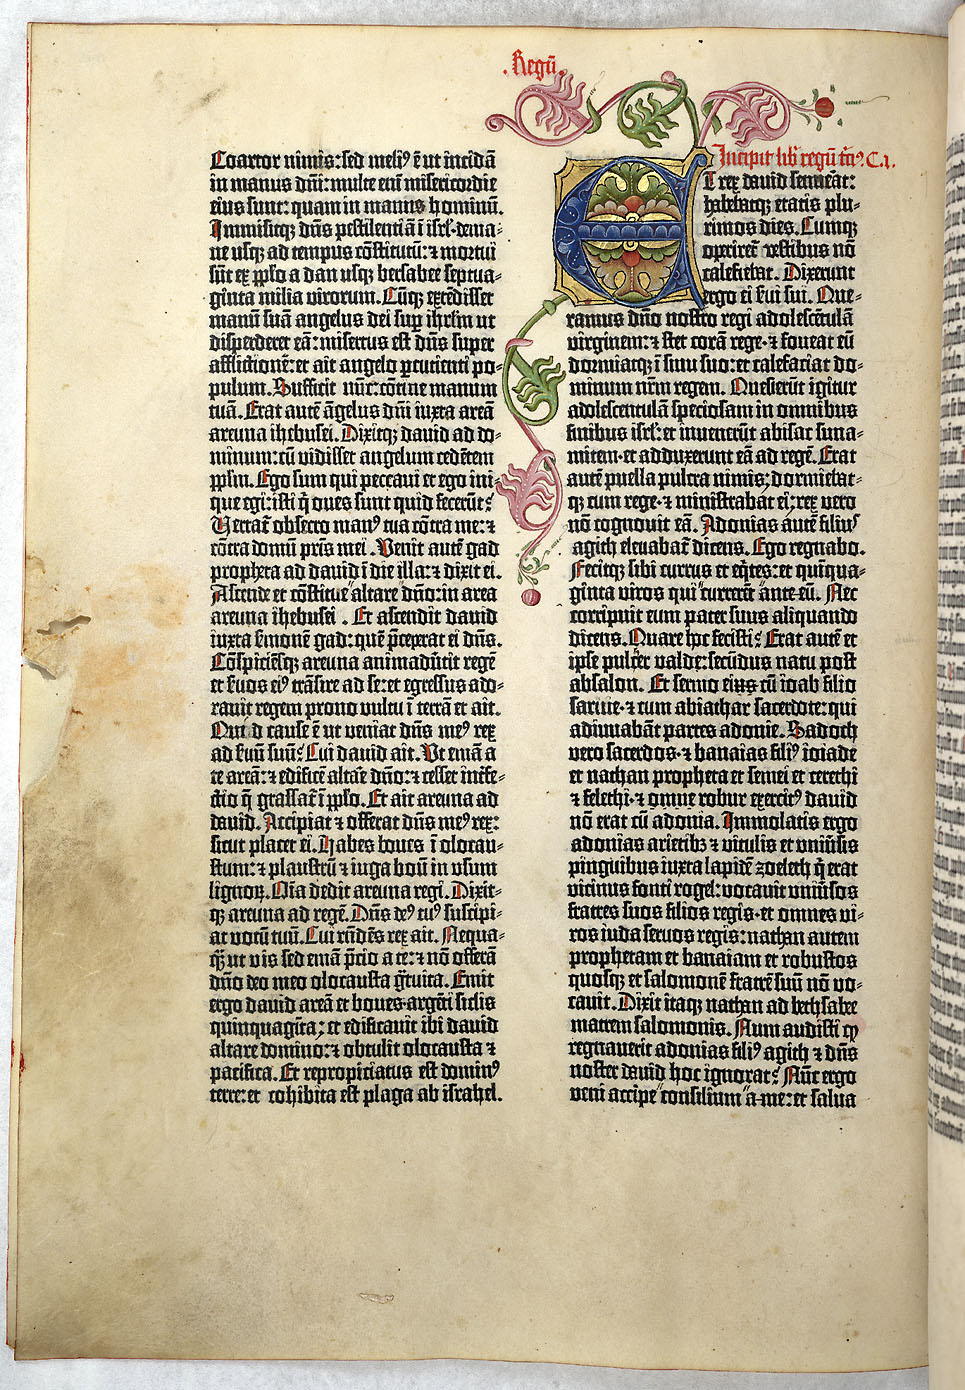 . Regũ.
Coartor nimis: sed meliꝰ ẽ ut incidã
in manus dñi: multe enĩ misericordie
eius sunt: quam in manus hominũ.
Immisitqꝫ dñs pestilentiã ĩ isrl̃· de ma⸗
ne usqꝫ ad tempus cõstitutũ: ⁊ mortui
sũt ex ppl̃o a dan usqꝫ bersabee septua⸗
ginta milia virorum. Cũqꝫ extẽdisset
manũ suã angelus dei sup̲ ihrl̃m ut
disperderet eã: misertus est dñs super
afflictionẽ: et ait angelo p̲cutienti po⸗
pulum. Sufficit nũc: cõtine manum
tuã. Erat autẽ ãgelus dñi iuxta areã
areuna ihebusei. Dixitqꝫ david ad do⸗
minum: cũ vidisset angelum cedẽtem
ppl̃m. Ego sum qui peccavi et ego ini⸗
que egi: isti q̃ oves sunt quid fecerũt?
Vertat̃ obsecro manꝰ tua cõtra me: ⁊
cõtra domũ pr̃is mei. Venit autẽ gad
propheta ad david ĩ die illa: ⁊ dixit ei.
Ascende et cõstitue altare dño: in area
areuna ihebusei. Et ascendit david
iuxta s̃monẽ gad: quẽ p̃ceperat ei dñs.
Cõspiciẽsqꝫ areuna animadṽtit regẽ
et s̃vos eiꝰ trãsire ad se: et egressus ado⸗
ravit regem prono vultu ĩ terrã et ait.
Quid cause ẽ ut veniat dñs meꝰ rex
ad s̃vũ suũ? Cui david ait. Ut emã a
te areã: ⁊ edificẽ altare dño: ⁊ cesset int̃fe⸗
ctio q̃ grassat̃ ĩ ppl̃o. Et ait areuna ad
david. Accipiat ⁊ offerat dñs meꝰ rex:
sicut placet ei. Habes boves ĩ olocau⸗
stum: ⁊ plaustrũ ⁊ iuga boũ in usum
lignoꝝ. Oĩa dedit areuna regi. Dixit⸗
qꝫ areuna ad regẽ. Dñs deꝰ tuꝰ suscipi⸗
at votũ tuũ. Cui rñdẽs rex ait. Nequa⸗
q̃ꝫ ut vis sed emã p̃cio a te: ⁊ nõ offerã
dño deo meo olocausta g̃tuita. Emit
ergo david areã et boves· argẽti siclis
quinquagĩta: et edificavit ibi david
altare domino: ⁊ obtulit olocausta ⁊
pacifica. Et repropiciatus est dominꝰ
terre: et cohibita est plaga ab israhel.
Incipit lib̃ regũ t̃ciꝰ C.i.
Et rex david senuẽat:
habebatqꝫ etatis plu⸗
rimos dies. Cumqꝫ
operiret̃ vestibus nõ
calefiebat. Dixerunt
ergo ei s̃vi sui. Que⸗
ramus dño nostro regi adolescẽtulã
virginem: ⁊ stet corã rege· ⁊ foveat eũ
dormiatqꝫ ĩ sinu suo: et calefaciat do⸗
minum nr̃m regem. Quesierũt igitur
adolescentulã speciosam in omnibus
finibus isrl̃: et invenerũt abisac suna⸗
mitem· et adduxerunt eã ad regẽ. Erat
autẽ puella pulcra nimis: dormiebat⸗
qꝫ cum rege· ⁊ ministrabat ei: rex vero
nõ cognovit eã. Adonias autẽ filiuˢ
agith elevabat̃ dicens. Ego regnabo.
Fecitqꝫ sibi currus et eq̃tes: et quĩqua⸗
ginta viros qui currerẽt ante eũ. Nec
corripuit eum pater suus aliquando
dicens. Quare hoc fecisti? Erat autẽ et
ipse pulcer valde: secũdus natu post
absalon. Et sermo eius cũ ioab filio
sarvie· ⁊ cum abiathar sacerdote: qui
adiuvabãt partes adonie. Sadoch
vero sacerdos· ⁊ banaias filiꝰ ioiade
et nathan propheta et semei et cerethi
⁊ felethi· ⁊ omne robur exercitꝰ david
nõ erat cũ adonia. Immolatis ergo
adonias arietibꝫ ⁊ vitulis et uniṽsis
pinguibus iuxta lapidẽ zoeleth q̃ erat
vicinus fonti rogel: vocavit uniṽsos
fratres suos filios regis· et omnes vi⸗
ros iuda servos regis: nathan autem
prophetam et banaiam et robustos
quosqꝫ et salomonẽ fratrẽ suũ nõ vo⸗
cavit. Dixit itaqꝫ nathan ad bethsabee
matrem salomonis. Num audisti ꝙ
regnaverit adonias filiꝰ agith ⁊ dñs
noster david hoc ignorat? Nũc ergo
veni accipe consilium a me: et salva